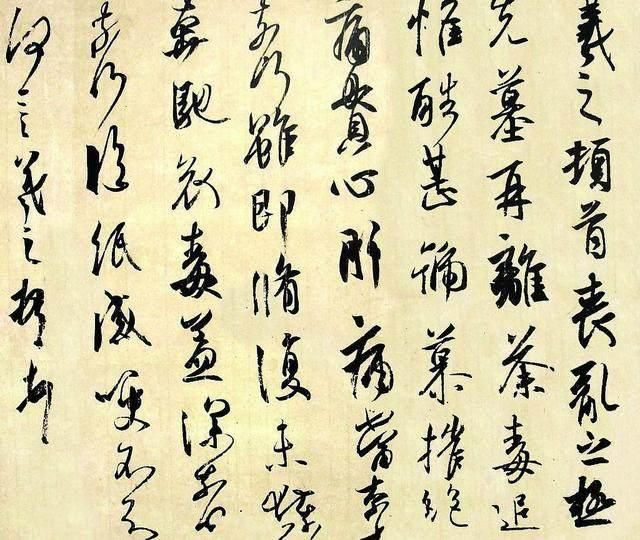 羲之頓首喪亂之極
先墓再離荼毒追
惟酷甚號慕摧絕
痛貫心肝痛當奈
奈何雖即脩復未獲
奔馳哀毒益深奈何
奈何臨紙感哽不知
何言羲之頓首